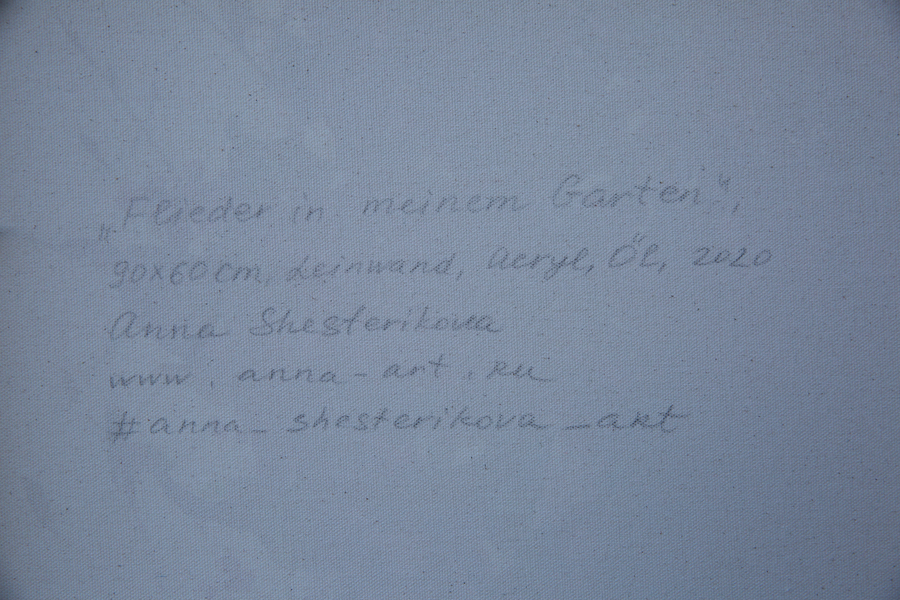 „Flieder in meinem Garten“,
90x60 cm, Leinwand, Acryl, Öl, 2020
Anna Shesterikova
www. anna-art.ru
#anna_shesterikova_art